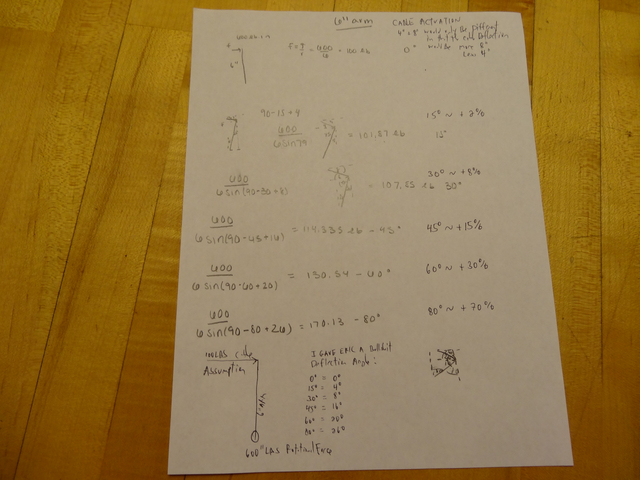 6" arm CABLE ACTUATION
4" + 8" would only be different
in that the cable deflection
would be more 8"
less 4"
600 lb in
6"
F = T/r = 600/6 = 100 lb
0°
90-15+4
600
6 sin 79
= 101.87 lb
15° ~ +2%
15°
600
6 sin(90-30+8)
= 107.85 lb 30°
30° ~ +8%
600
6 sin(90-45+16) = 114.335 lb - 45°
45° ~ +15%
600
6 sin(90-60+20) = 130.54 - 60°
60° ~ +30%
600
6 sin(90-80+26) = 170.13 - 80°
80° ~ +70%
100LBS
Assumption
6" Arm
600" LBS Rotational Force
I GAVE EACH A Bullshit
Deflection Angle:
0° = 0°
15° = 4°
30° = 8°
45° = 16°
60° = 20°
80° = 26°